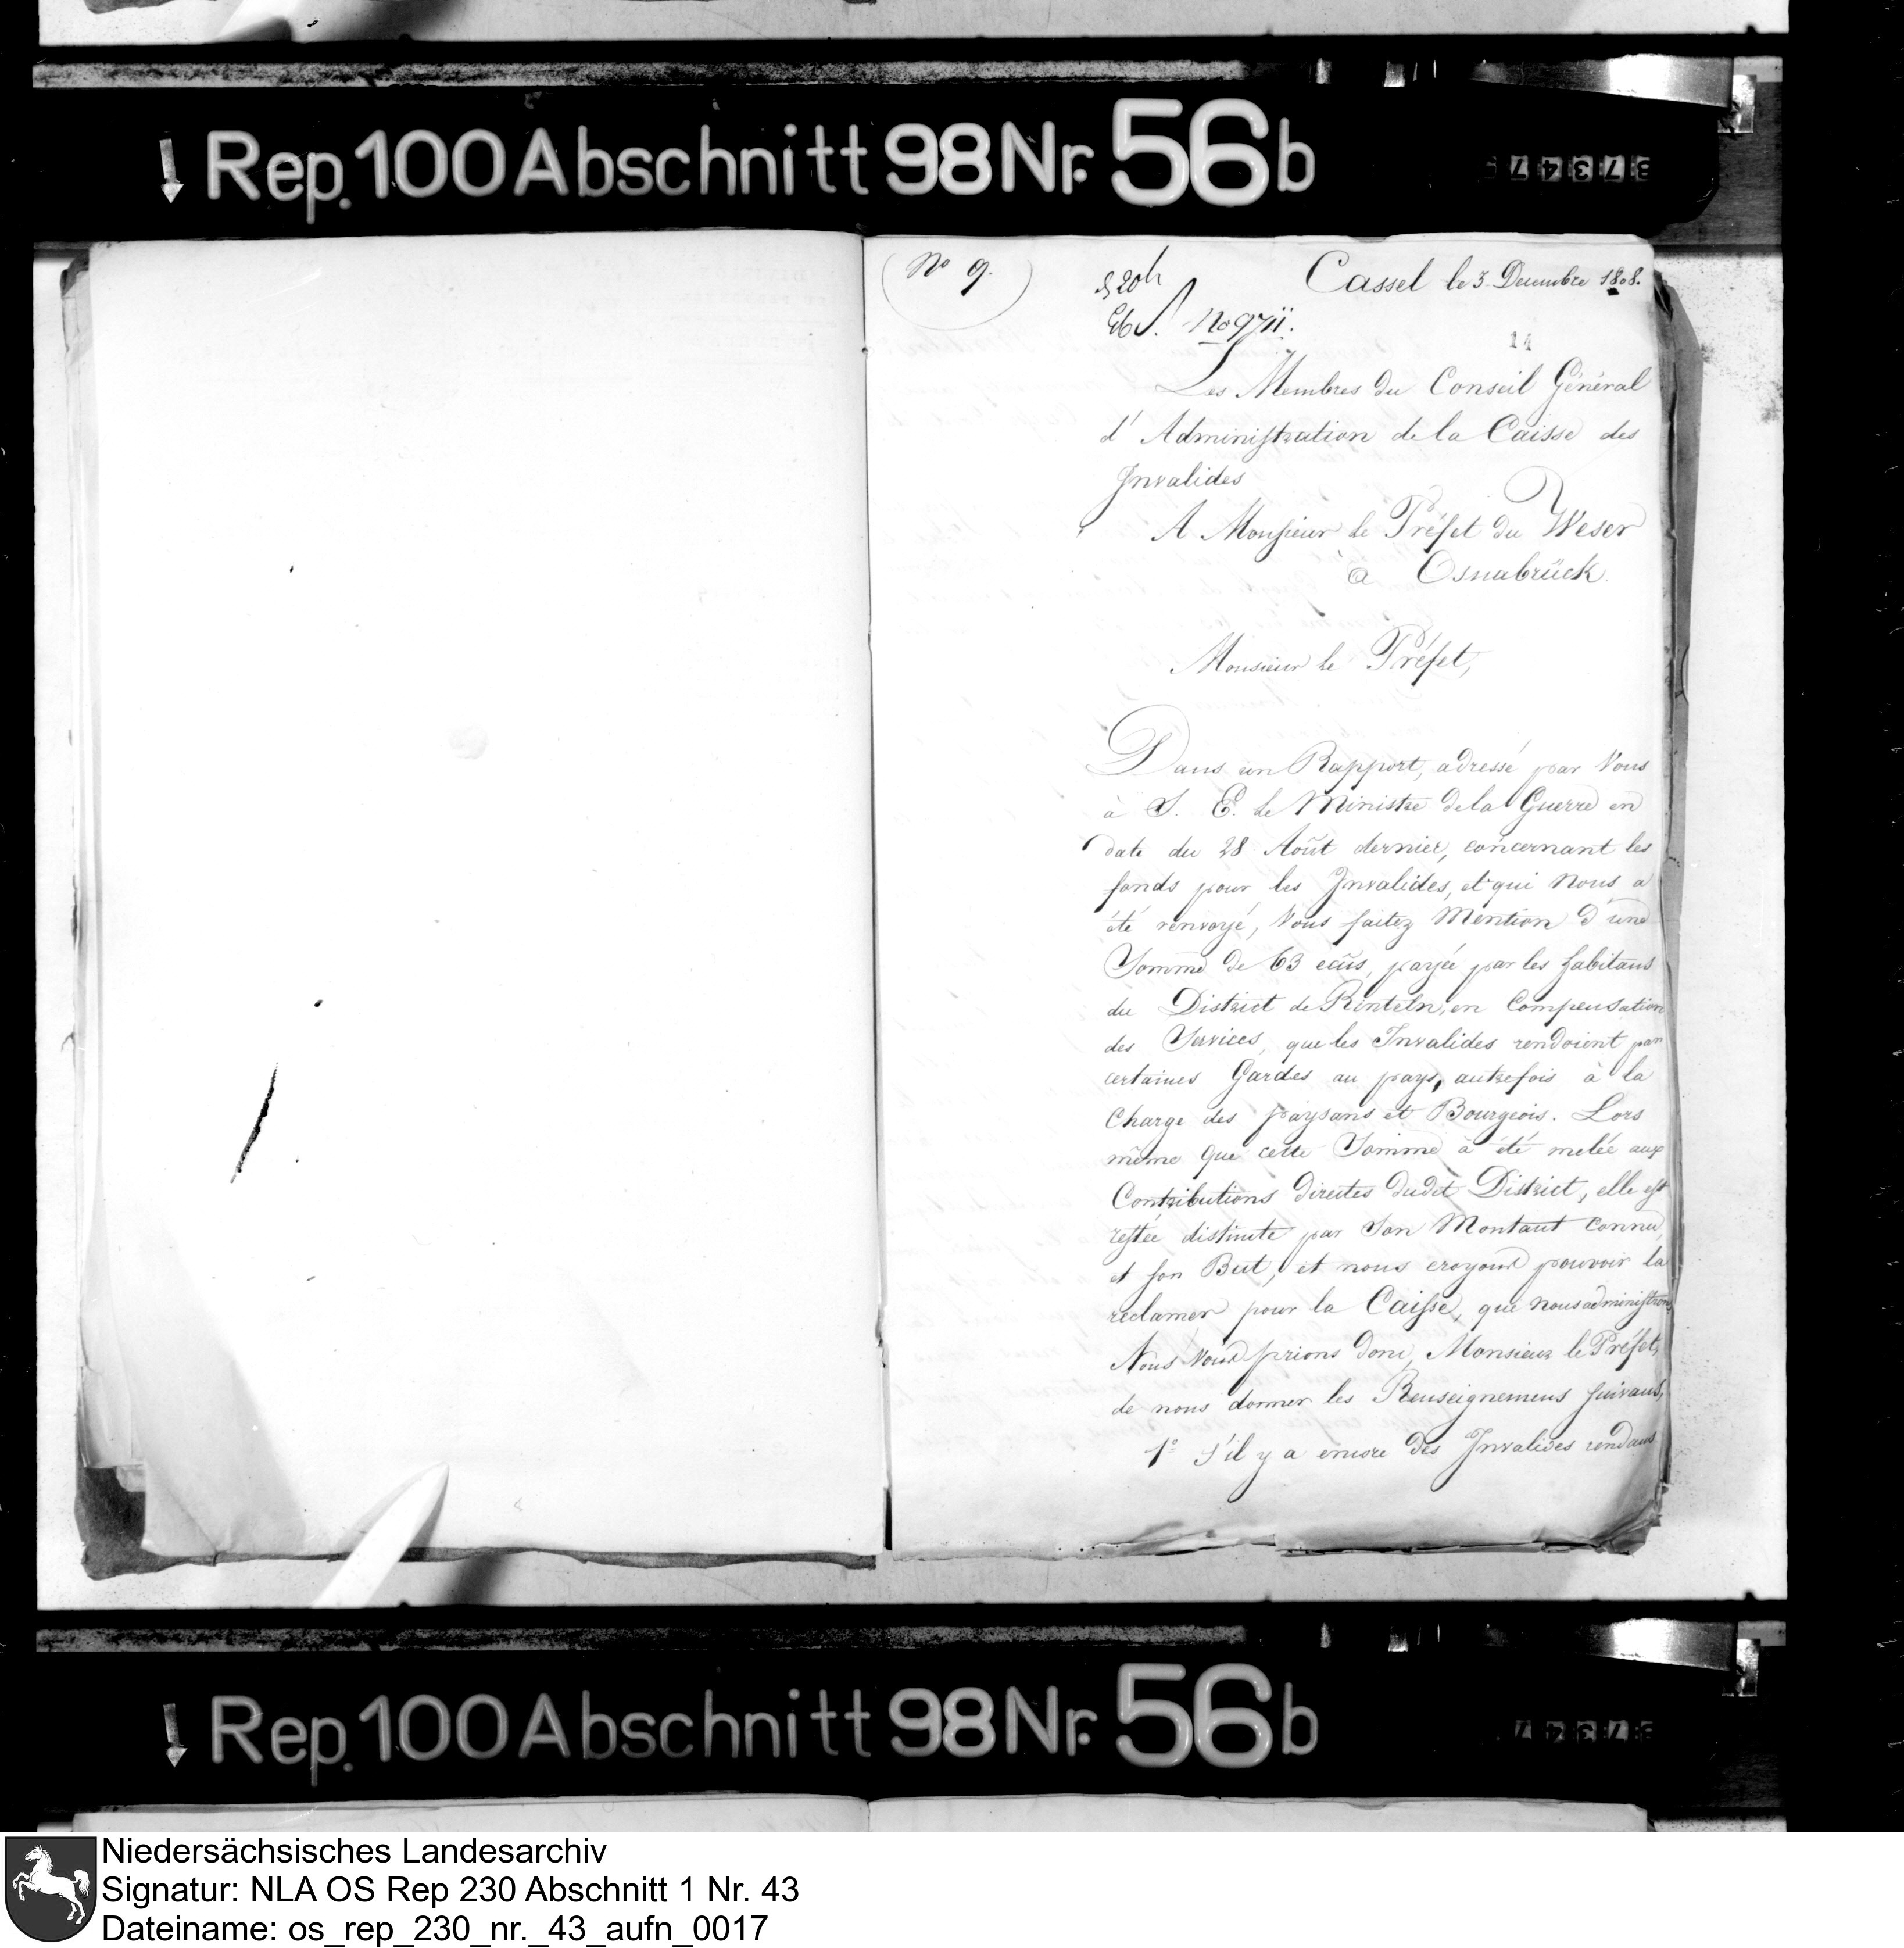 Rep. 100 Abschnitt 98 Nr. 56b
37347
No 9.
Cassel le 3 Decembre 1808.
No 9711.
14
Les Membres du Conseil Général
d'Administration de la Caisse des
Invalides
A Monsieur le Préfet du Weser
à Osnabrück.
Monsieur le Préfet,
Dans un Rapport, adressé par Vous
à S. E. le Ministre de la Guerre en
date du 28 Août dernier, concernant les
fonds pour les Invalides, et qui nous a
été renvoyé, Vous faitez Mention d'une
Somme de 63 ecûs, payée par les habitans
du District de Rinteln, en Compensation
des Services, que les Invalides rendoient par
certaines Gardes au pays, autrefois à la
Charge des paysans et Bourgeois. Lors
même que cette Somme à été melée aux
Contributions directes dudit District, elle est
restée distincte par Son Montant connu,
et son But, et nous croyons pouvoir la
réclamer pour la Caisse, que nous administrons
Nous Vous prions donc, Monsieur le Préfet,
de nous donner les Renseignemens suivans,
1° S'il y a encore des Invalides rendans
Rep. 100 Abschnitt 98 Nr. 56b
37347
Niedersächsisches Landesarchiv
Signatur: NLA OS Rep 230 Abschnitt 1 Nr. 43
Dateiname: os_rep_230_nr._43_aufn_0017